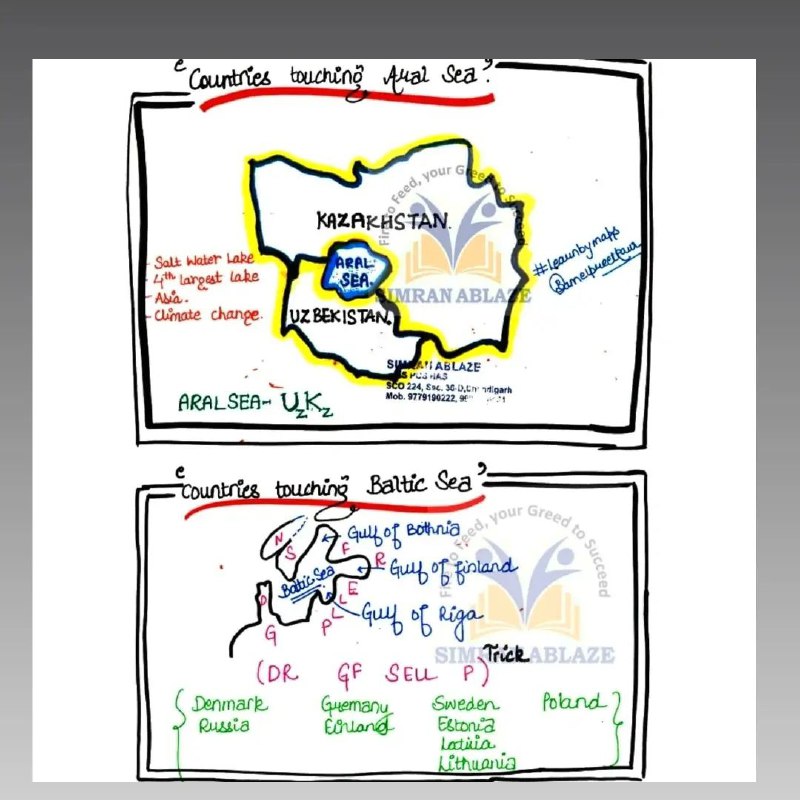 "Countries touching Aral Sea".
KAZAKHSTAN.
ARAL
SEA.
UZBEKISTAN.
- Salt Water Lake
- 4th largest lake
- Asia.
- Climate change.
#learnbymaps
First to Feed, your Greed to Succeed
SIMRAN ABLAZE
SIMRAN ABLAZE
SCO 224, Sec. 36-D, Chandigarh
Mob. 9779190222,
ARAL SEA- UzKz
"Countries touching Baltic Sea"
N
S
F
Gulf of Bothnia
R
Gulf of finland
Baltic Sea
E
L
L
Gulf of Riga
D
G
P
your Greed to Succeed
SIMRAN ABLAZE
Trick
(DR GF SELL P)
Denmark Germany Sweden Poland
Russia Finland Estonia
Latvia
Lithuania